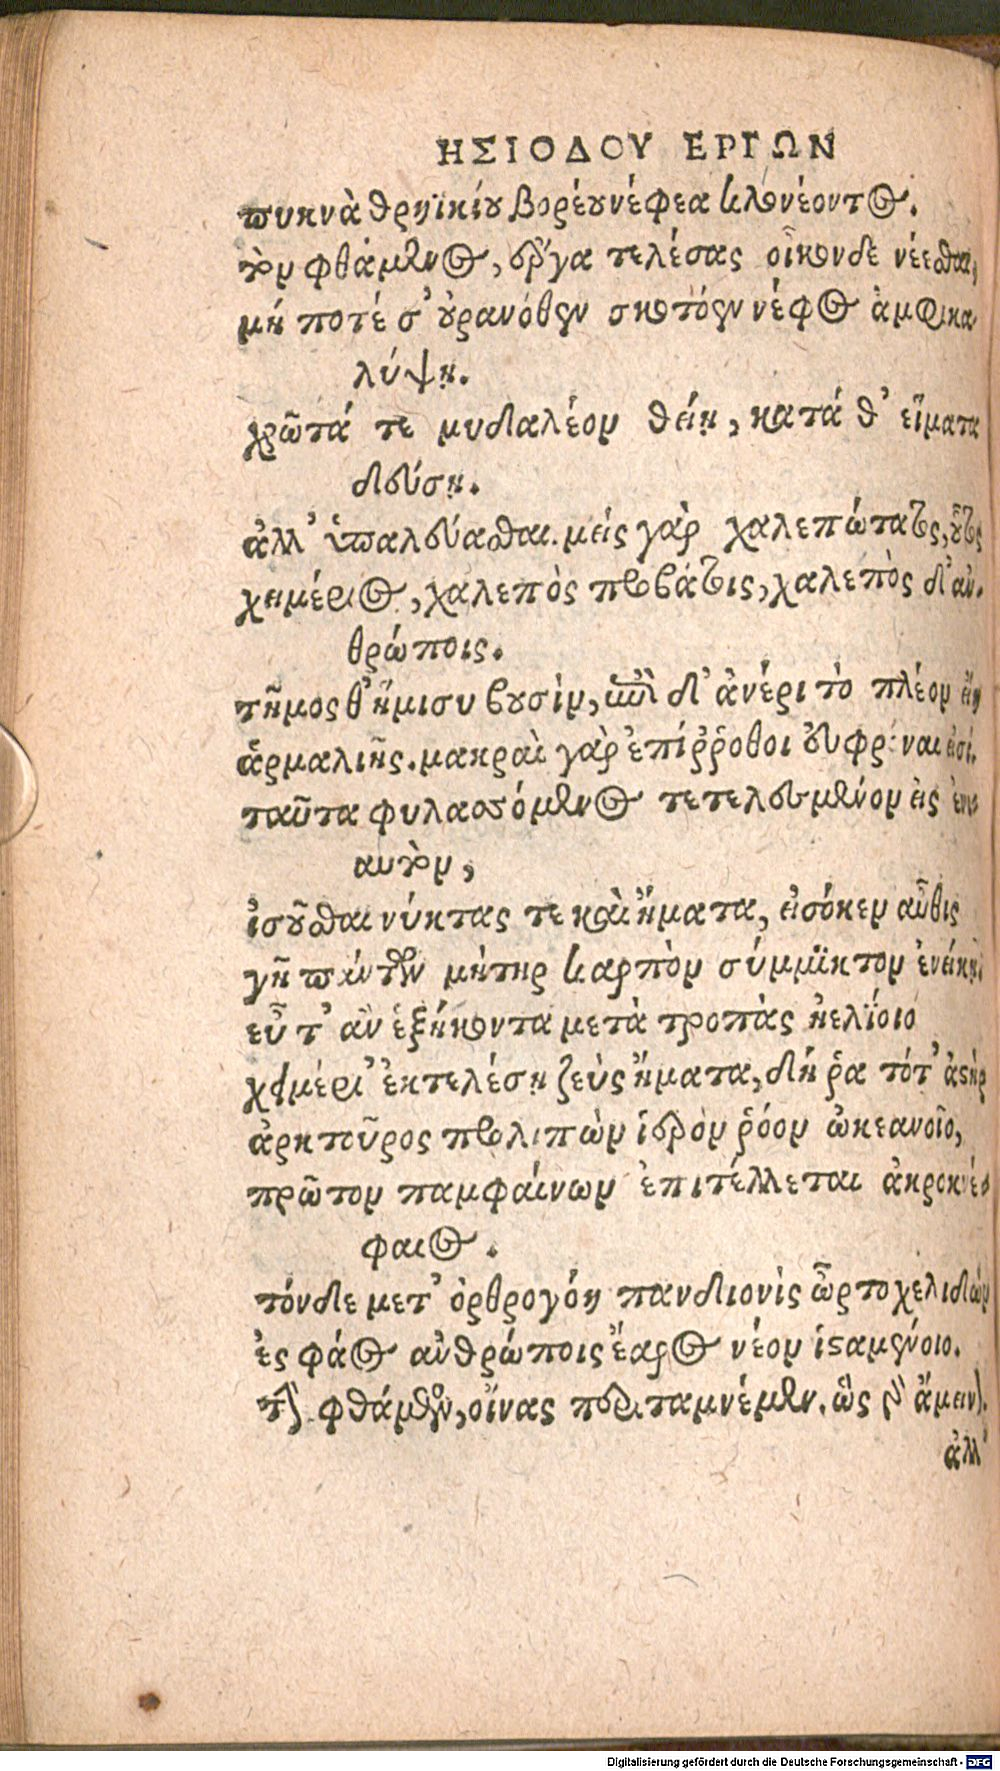 ΗΣΙΟΔΟΥ ΕΡΓΩΝ
πυκνὰ θρηϊκίου βορέου νέφεα κλονέοντος.
τὸν φθάμενος, ἔργα τελέσας οἶκονδε νέεσθαι,
μή ποτέ σ' οὐρανόθεν σκοτόεν νέφος ἀμφικα
λύψῃ.
χρῶτά τε μυδαλέον θείῃ, κατά θ' εἵματα
δεύσῃ.
ἀλλ' ὑπαλεύασθαι. μεὶς γὰρ χαλεπώτατος, οὗτος
χειμέριος, χαλεπὸς προβάτοις, χαλεπὸς δ' ἀν.
θρώποις.
τῆμος θ' ἥμισυ βουσὶν, ἐπὶ δ' ἀνέρι τὸ πλέον εἴη
ἁρμαλιῆς. μακραὶ γὰρ ἐπίῤῥοθοι εὐφρόναι εἰσί.
ταῦτα φυλασσόμενος τετελευμένον εἰς ἐνι
αυτὸν,
ἰσοῦσθαι νύκτας τε καὶ ἤματα, εἰσόκεν αὖθις
γῆ πάντων μήτηρ καρπὸν σύμμϊκτον ἐνείκῃ.
εὖ τ' ἂν ἑξήκοντα μετὰ τροπὰς ἠελΐοιο
χειμέρι' ἐκτελέσῃ ζεὺς ἤματα, δή ῥα τότ' ἀστὴρ
ἀρκτοῦρος προλιπὼν ἱερὸν ῥόον ὠκεανοῖο,
πρῶτον παμφαίνων ἐπιτέλλεται ἀκροκνέ
φαιος.
τόνδε μετ' ὀρθρογόη πανδιονὶς ὦρτο χελιδὼν
ἐς φάος ἀνθρώποις ἔαρος νέον ἱσταμένοιο.
τὴν φθάμενος, οἴνας περιταμνέμεν. ὣς γὰρ ἄμεινον.
ἀλλ'
Digitalisierung gefördert durch die Deutsche Forschungsgemeinschaft - DFG